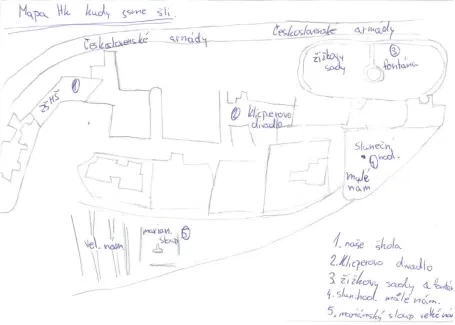 Mapa Hk kudy jsme šli.
Československé armády
Československé armády
③
žižkovy
sady
fontána
①
ZŠ HŠ
② Klicperovo
divadlo
sluneční
④ hod.
malé
nám
vel. nám
marian.
sloup
⑤
1. naše škola
2. Klicperovo divadlo
3. žižkovy sady a fontána
4. slun.hod. malé nám.
5. mariánský sloup velké nám